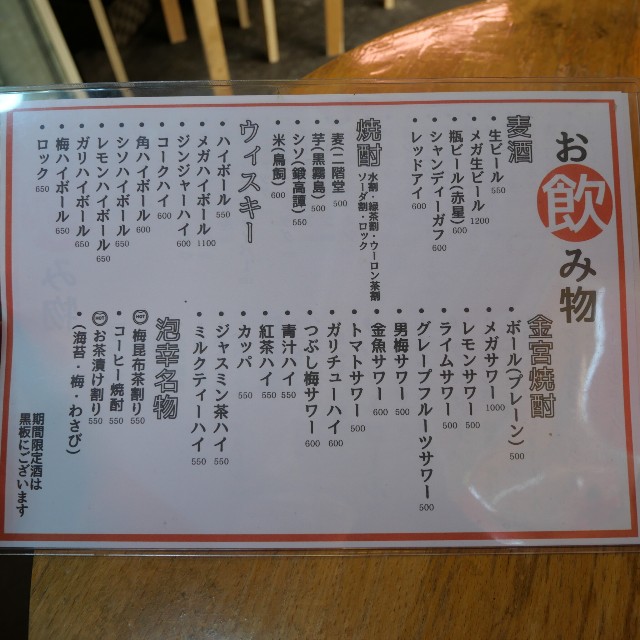 お飲み物
麦酒
・生ビール 550
・メガ生ビール 1200
・瓶ビール(赤星) 600
・シャンディーガフ 600
・レッドアイ 600
焼酎
水割・緑茶割・ウーロン茶割
ソーダ割・ロック
・麦(二階堂) 500
・芋(黒霧島) 500
・シソ(鍛高譚) 500
・米(鳥飼) 600
ウィスキー
・ハイボール 550
・メガハイボール 1100
・ジンジャーハイ 600
・コークハイ 600
・角ハイボール 600
・シソハイボール 650
・レモンハイボール 650
・ガリハイボール 650
・梅ハイボール 650
・ロック 650
金宮焼酎
・ボール(プレーン) 500
・メガサワー 1000
・レモンサワー 500
・ライムサワー 500
・グレープフルーツサワー 500
・男梅サワー 500
・金魚サワー 600
・トマトサワー 500
・ガリチューハイ 600
・つぶし梅サワー 600
・青汁ハイ 550
・紅茶ハイ 550
・カッパ 550
・ジャスミン茶ハイ 550
・ミルクティーハイ 550
泡幸名物
HOT 梅昆布茶割り 550
・コーヒー焼酎 550
HOT お茶漬け割り 550
・(海苔・梅・わさび)
期間限定酒は
黒板にございます